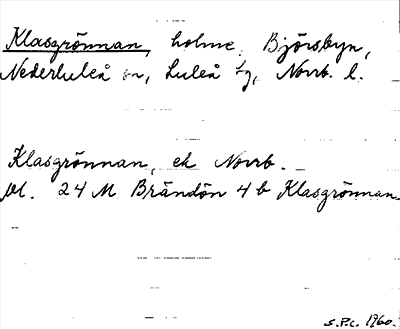 Klasgrönnan, holme, Björsbyn,
Nederluleå sn, Luleå tg, Norrb. l.
Klasgrönnan, ek Norrb.
Bl. 24 M Brändön 4 b Klasgrönnan
S.P.C. 1960.